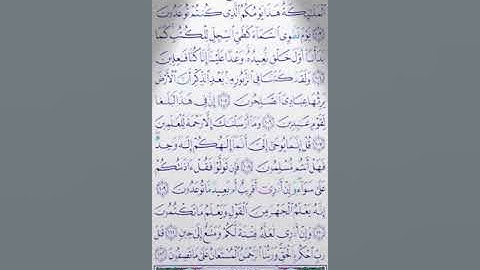 ٱلْمَلَـٰٓئِكَةُ هَـٰذَا يَوْمُكُمُ ٱلَّذِى كُنتُمْ تُوعَدُونَ
١٠٣ يَوْمَ نَطْوِى ٱلسَّمَآءَ كَطَىِّ ٱلسِّجِلِّ لِلْكُتُبِ كَمَا
بَدَأْنَآ أَوَّلَ خَلْقٍ نُّعِيدُهُۥ وَعْدًا عَلَيْنَآ إِنَّا كُنَّا فَـٰعِلِينَ
١٠٤ وَلَقَدْ كَتَبْنَا فِى ٱلزَّبُورِ مِنۢ بَعْدِ ٱلذِّكْرِ أَنَّ ٱلْأَرْضَ
يَرِثُهَا عِبَادِىَ ٱلصَّـٰلِحُونَ ١٠٥ إِنَّ فِى هَـٰذَا لَبَلَـٰغًا
لِّقَوْمٍ عَـٰبِدِينَ ١٠٦ وَمَآ أَرْسَلْنَـٰكَ إِلَّا رَحْمَةً لِّلْعَـٰلَمِينَ
١٠٧ قُلْ إِنَّمَا يُوحَىٰٓ إِلَىَّ أَنَّمَآ إِلَـٰهُكُمْ إِلَـٰهٌ وَٰحِدٌ
فَهَلْ أَنتُم مُّسْلِمُونَ ١٠٨ فَإِن تَوَلَّوْا۟ فَقُلْ ءَاذَنتُكُمْ
عَلَىٰ سَوَآءٍ وَإِنْ أَدْرِىٓ أَقَرِيبٌ أَم بَعِيدٌ مَّا تُوعَدُونَ ١٠٩
إِنَّهُۥ يَعْلَمُ ٱلْجَهْرَ مِنَ ٱلْقَوْلِ وَيَعْلَمُ مَا تَكْتُمُونَ
١١٠ وَإِنْ أَدْرِى لَعَلَّهُۥ فِتْنَةٌ لَّكُمْ وَمَتَـٰعٌ إِلَىٰ حِينٍ ١١١ قَـٰلَ
رَبِّ ٱحْكُم بِٱلْحَقِّ وَرَبُّنَا ٱلرَّحْمَـٰنُ ٱلْمُسْتَعَانُ عَلَىٰ مَا تَصِفُونَ ١١٢